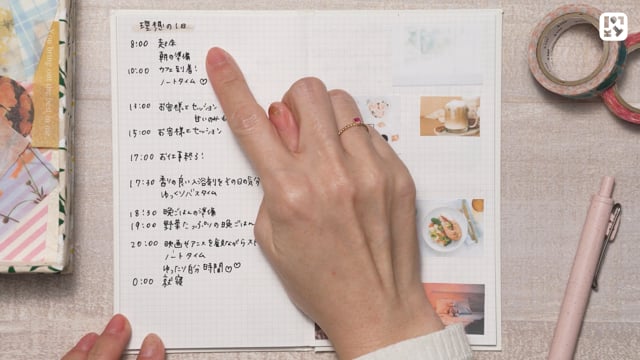 理想の1日
8:00 起床
朝の準備
10:00 カフェ到着!
ノートタイム♡
13:00 お客様とセッション
甘いのサイ
15:00 お客様とセッション
17:00 お仕事終了!
17:30 香りの良い入浴剤をその日の気分
ゆっくりバスタイム
18:30 晩ごはんの準備
19:00 野菜たっぷりの晩ごはん
20:00 映画やアニメを見ながらス
ノートタイム
ゆったり自分時間♡♡
0:00 就寝